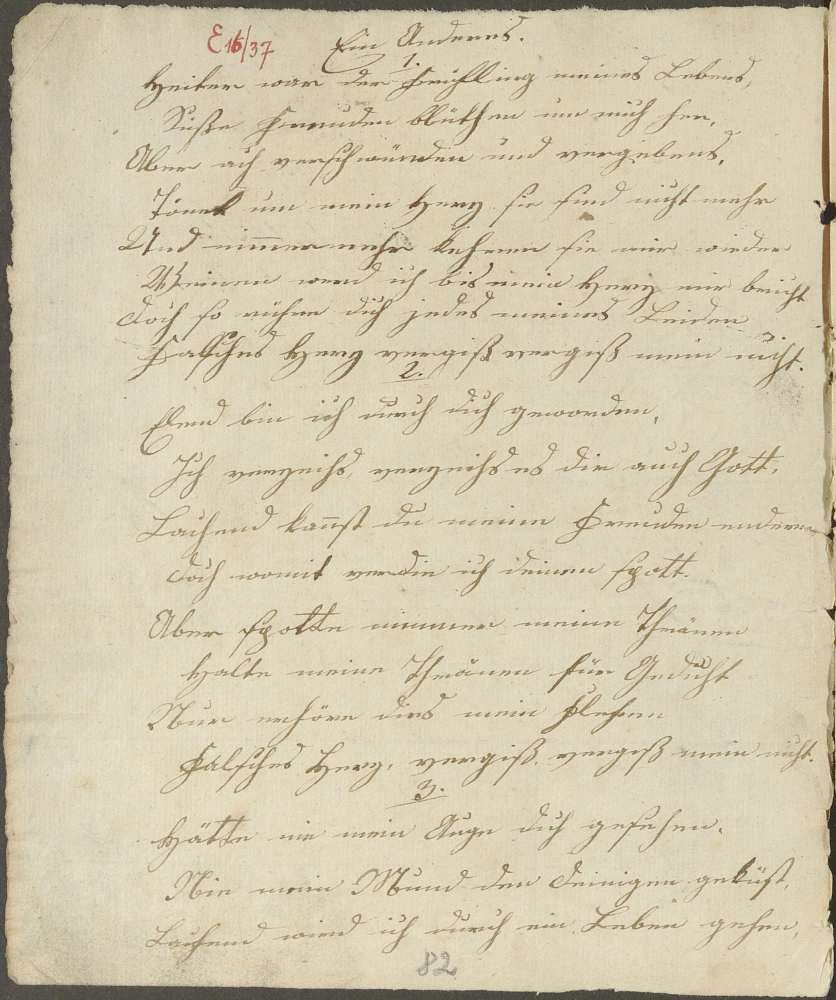 E 16/37
Ein Anderes.
1.
Heiter war der Frühling meines Lebens,
Süße Freuden blühten um mich her,
Aber ach verschwunden und vergebens,
Tönet um mein Herz sie sind nicht mehr
Und nimmermehr kehren sie mir wieder
Weinen werd ich bis mein Herz mir bricht
Doch so rühre dich jedes meines Leiden
Falsches Herz vergiß vergiß mein nicht.
2.
Elend bin ich durch dich geworden,
Ich verzeihs, verzeihs es dir auch Gott,
Lachend kanst du meine Freuden
Doch womit verdin ich deinen spott.
Aber spotte nimmer meine Thränen
Halte meine Thränen für Gedicht
Nur erhöre dies mein Flehen
Falsches Herz, vergiß, vergiß mein nicht.
3.
Hätte nie mein Auge dich gesehen,
Nie mein Mund den deinigen geküst,
Lachend wird ich durch ein Leben gehen,
82